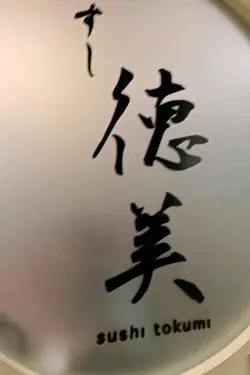 すし
徳美
sushi tokumi